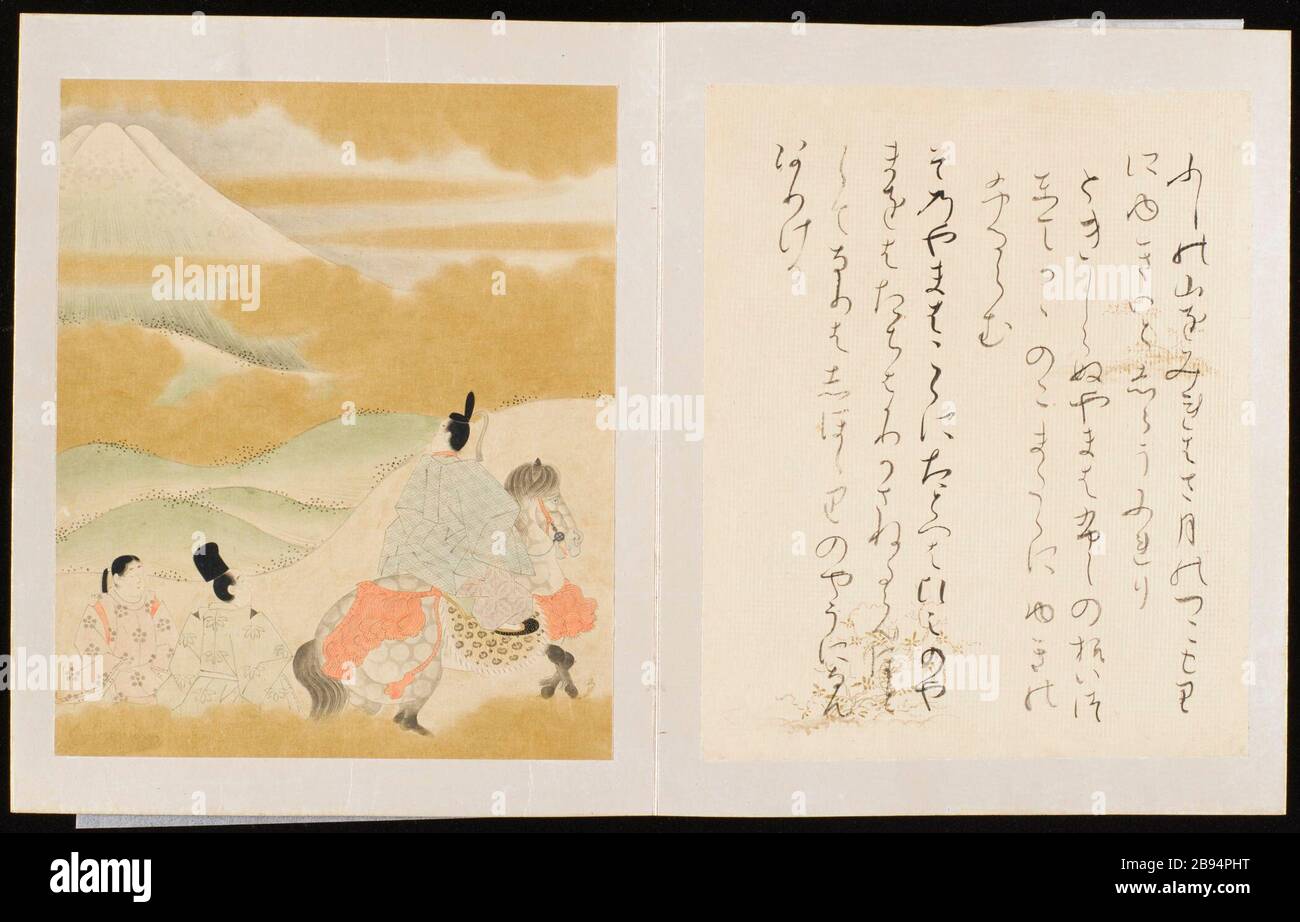 ふしの山をみれはさ月のつこもり
にゆきいとしろうふれり
ときしらぬやまはふしのねいつ
とてかかのこまたらにゆきの
ふるらむ
そのやまはここにたとへはひえのや
まをはたちはかりかさねあけたらんほと
してなりはしほしりのやうになん
ありける
alamy
Image ID: 2B94PHT
www.alamy.com